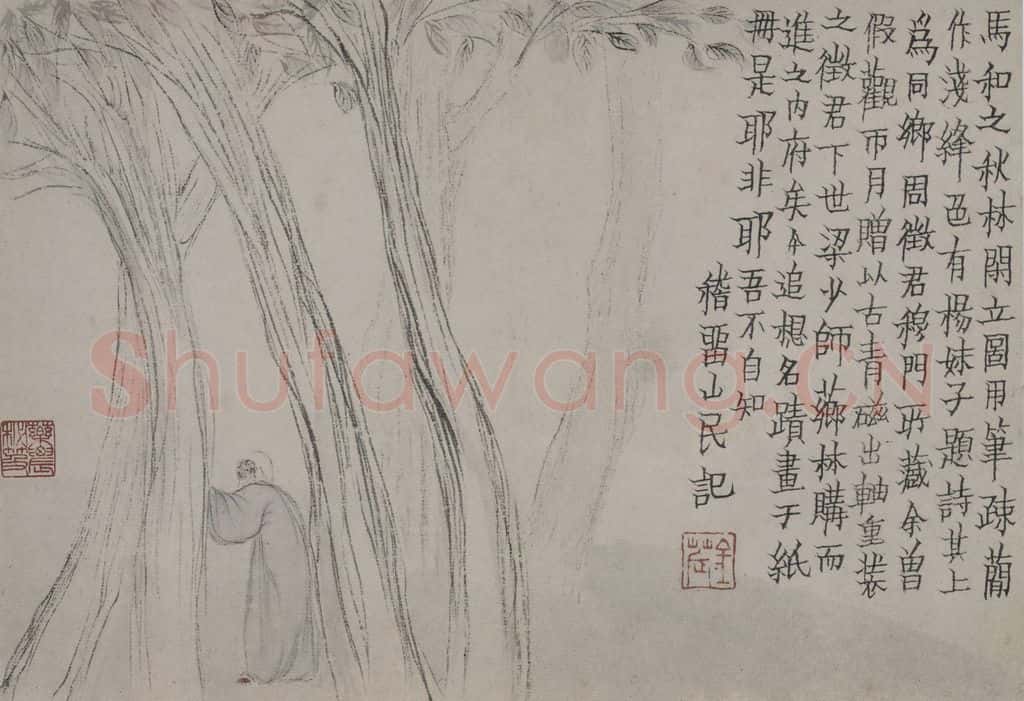 馬和之秋林閑立圖用筆疎蕳
作淺絳色有楊妹子題詩其上
爲同鄉周徵君穆門所藏余曾
假觀帀月贈以古青磁出軸重裝
之徵君下世梁少師薌林購而
進之内府矣今追想名蹟畫于紙
冊是耶非耶吾不自知
稽畱山民記
金農
Shufawang.CN